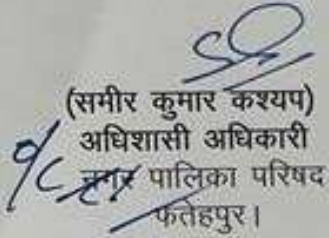 (समीर कुमार कश्यप)
अधिशासी अधिकारी
नगर पालिका परिषद
फतेहपुर।